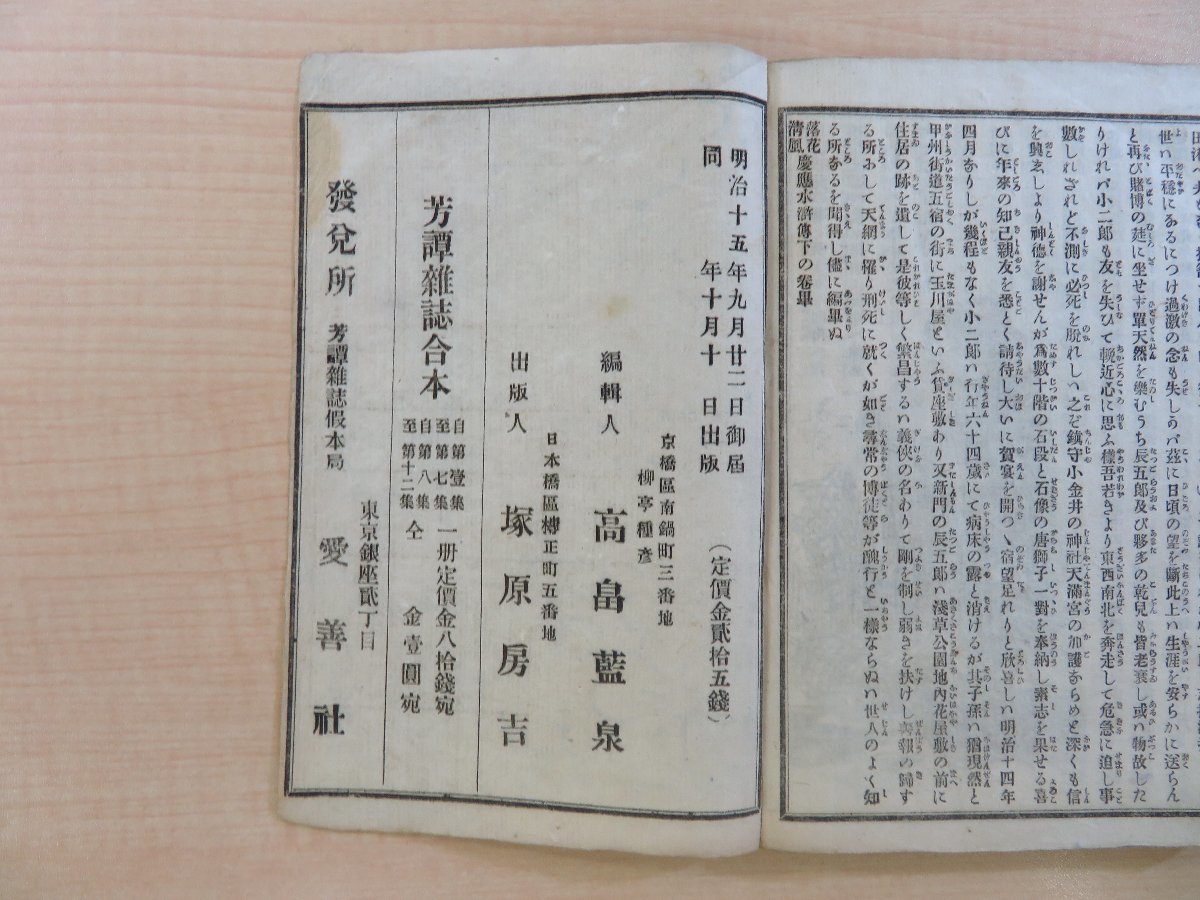 世い平穩にあるにつけ過激の念も失しのバ茲に日頃の望を斷此上い生涯を安らかに送らん
と再び賭博の莚に坐せず單天然を樂むうち辰五郎及び夥多の乾兒も皆老衰し或い物故した
りけれバ小二郎も友を失ひて輓近心に思ふ樣吾若きより東西南北を奔走して危急に迫し事
數しれされど不測に必死を脱れしい之ぞ鎭守小金井の神社天滿宮の加護ならめと深くも信
を興ゑしより神德を謝せんが爲數十階の石段と石像の唐獅子一對を奉納し素志を果せる喜
びに年來の知己親友を悉とく請待し大いに賀宴を開つゝ宿望足れりと欣喜しい明治十四年
四月なりしが幾程もなく小二郎い行年六十四歲にて病床の露と消けるが其子孫い猶現然と
甲州街道五宿の街に玉川屋といふ貨座敷あり又新門の辰五郎い淺草公園地內花屋敷の前に
住居の跡を遺して是彼等しく繁昌するい義俠の名わりて剛を制し弱きを扶けし善報の歸す
る所おして天網に罹り刑死に就くが如き尋常の博徒等が醜行と一樣ならぬい世人のよく知
る所なるを聞得し儘に編畢ぬ
落花淸風慶應水滸傳下の卷畢
明治十五年九月廿二日御屆
同　　　年十月十　日出版
（定價金貳拾五錢）
京橋區南鍋町三番地
柳亭種彥
編輯人　高畠藍泉
日本橋區榑正町五番地
出版人　塚原房吉
芳譚雜誌合本
自第壹集
至第七集　一册定價金八拾錢宛
自第八集
至第十二集　仝　金壹圓宛
東京銀座貳丁目
發兌所　芳譚雜誌假本局　愛善社